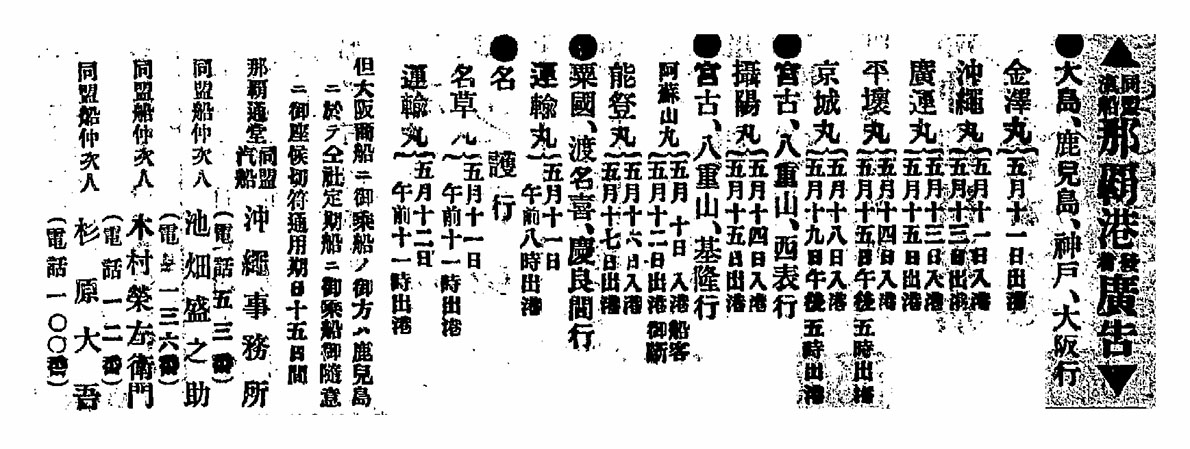 ▲同盟汽船那覇港發着廣告▼
●大島、鹿兒島、神戸、大阪行
金澤丸 五月十一日出港
沖繩丸 五月十一日入港
五月十三日出港
廣運丸 五月十三日入港
五月十五日出港
平壤丸 五月十四日入港
五月十五日午後五時出港
京城丸 五月十八日入港
五月十九日午後五時出港
●宮古、八重山、西表行
攝陽丸 五月十四日入港
五月十五日出港
●宮古、八重山、基隆行
阿蘇山丸 五月十日入港船客
五月十二日出港御斷
能登丸 五月十六日入港
五月十七日出港
●粟國、渡名喜、慶良間行
運輸丸 五月十一日
午前八時出港
●名護行
名草丸 五月十一日
午前十一時出港
運輸丸 五月十二日
午前十一時出港
但大阪商船ニ御乘船ノ御方ハ鹿兒島
ニ於テ仝社定期船ニ御乘船御隨意
ニ御座候切符通用期日十五日間
那覇通堂 同盟汽船 沖繩事務所
(電話五三番)
同盟船仲次人 池畑盛之助
(電話一三六番)
同盟船仲次人 木村榮左衛門
(電話一二番)
同盟船仲次人 杉原大吾
(電話一〇〇番)